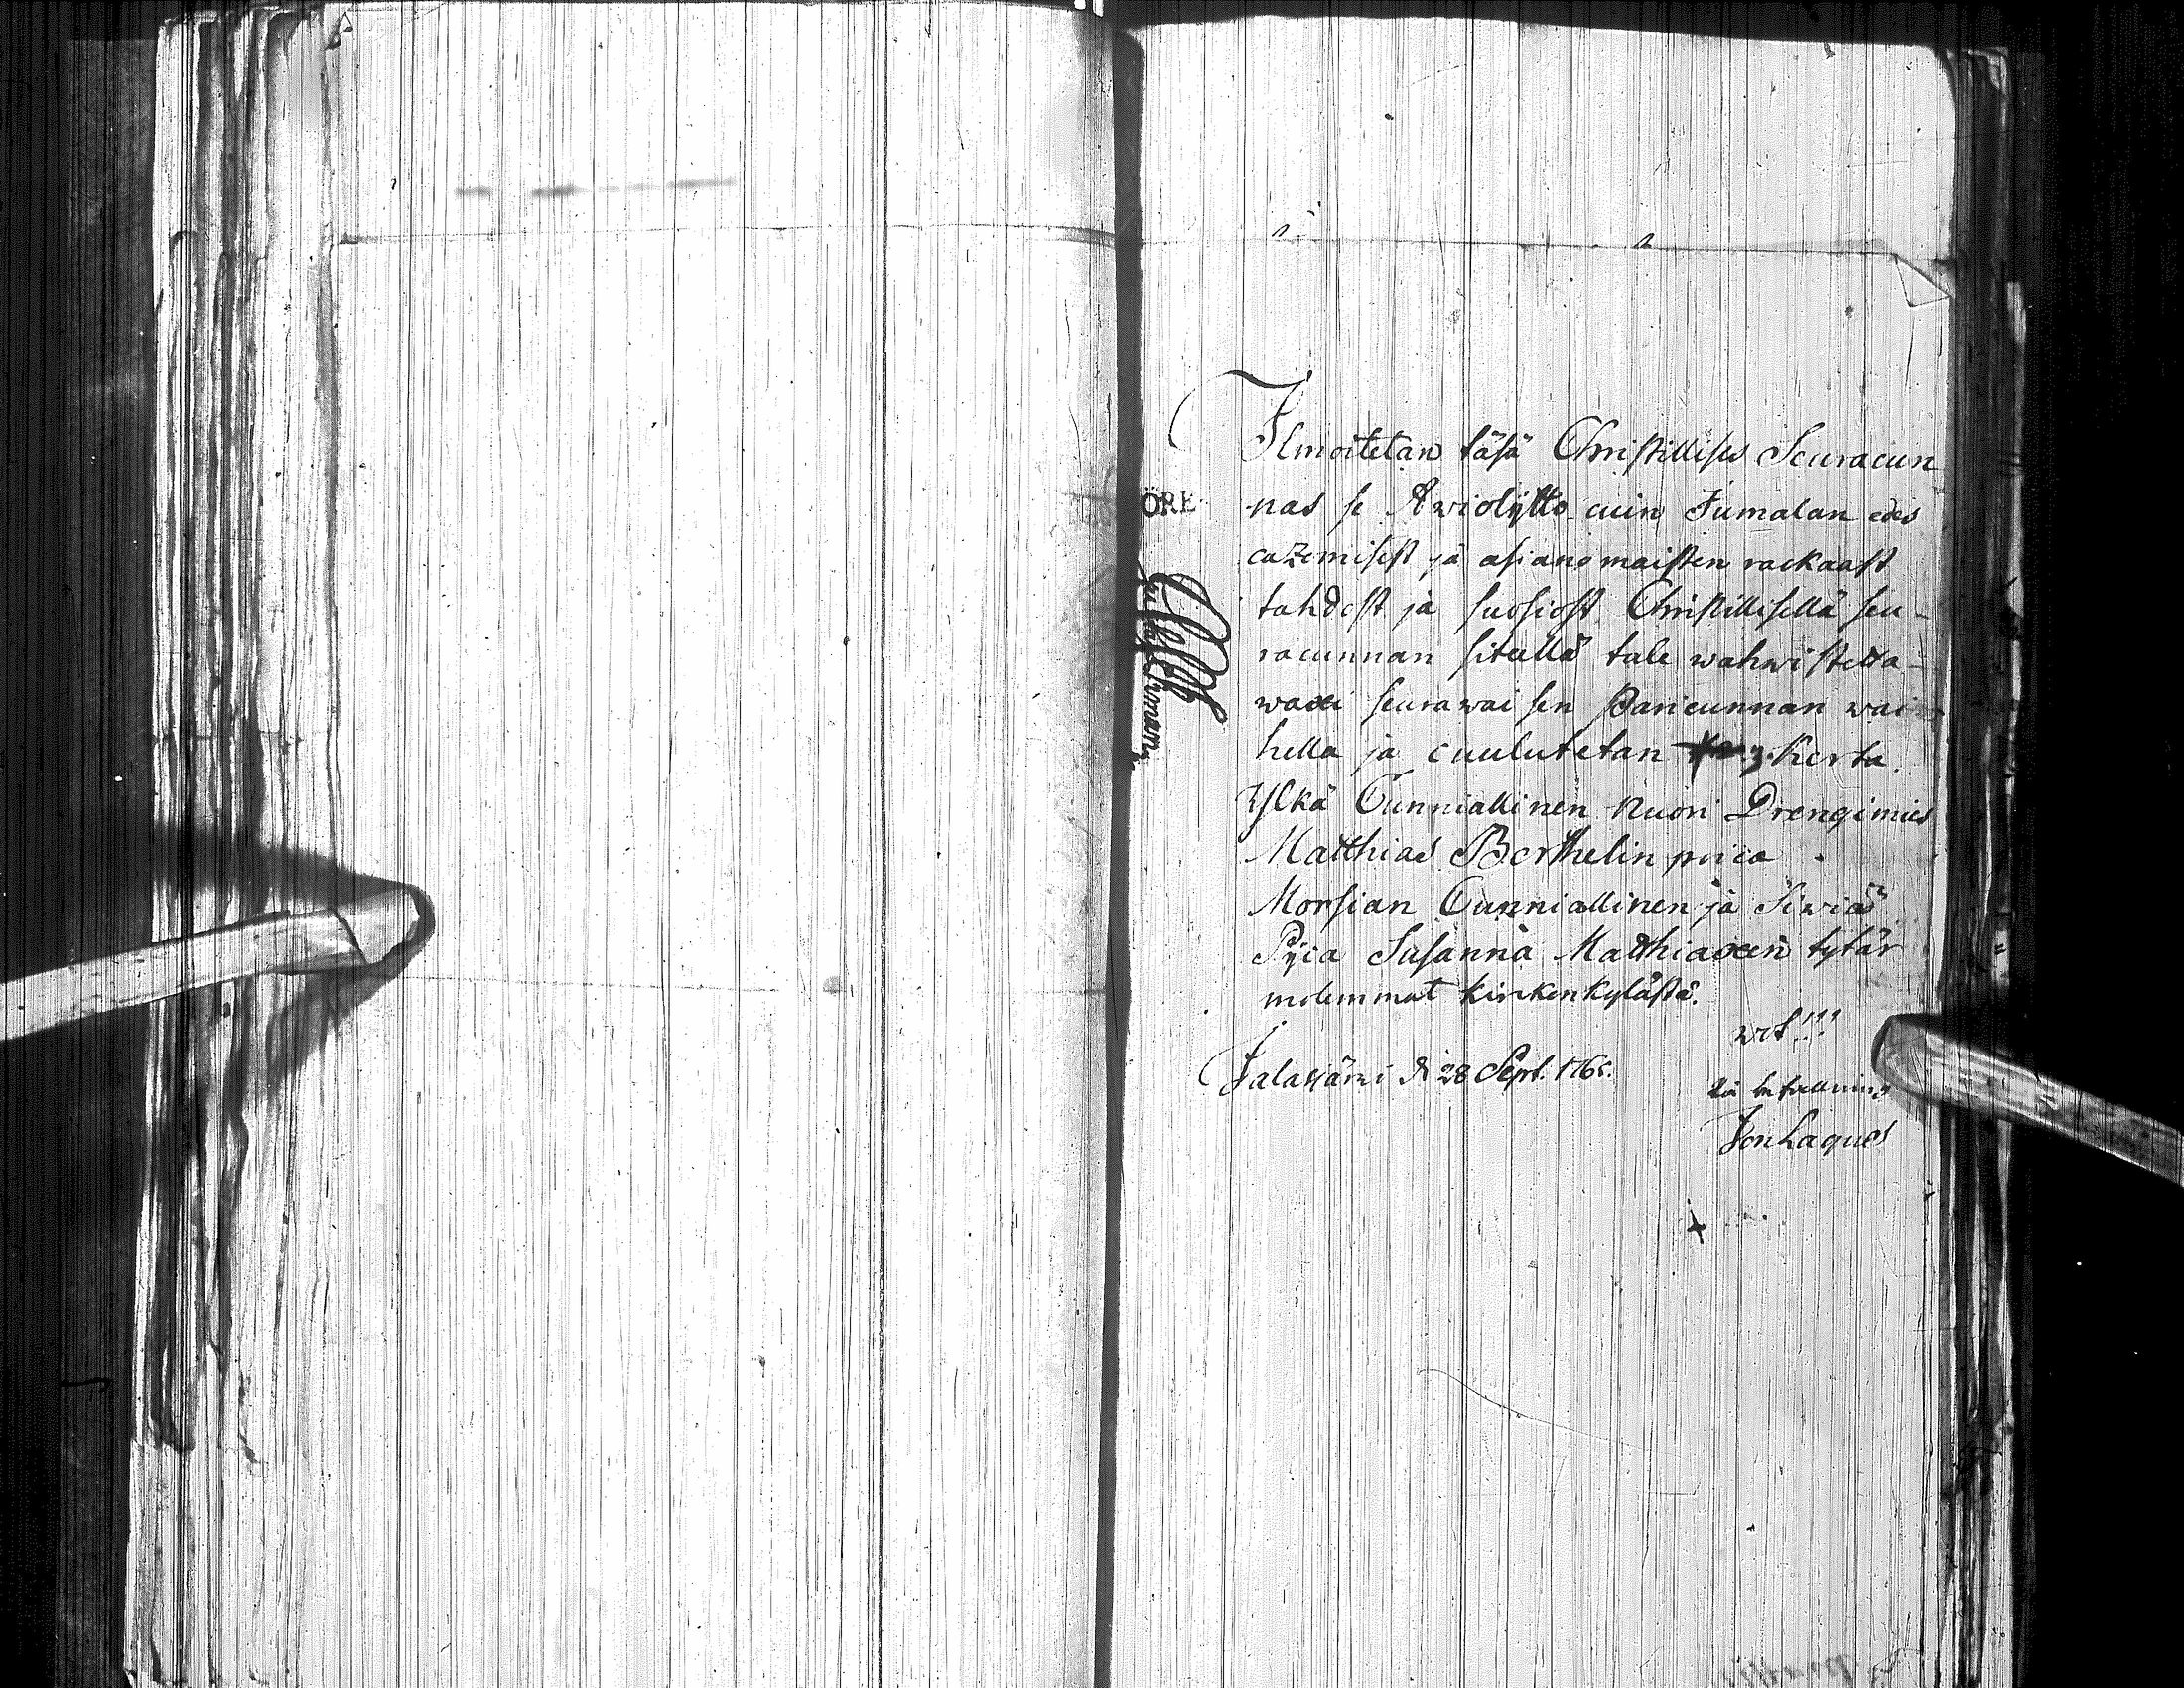 Ilmoitetan täsä Christillises Seuracun
nas se Awiolijtto cuin Jumalan edes
cazemisest ja asianomaisten rackaast
tahdost ja suosiost Christillisellä seu-
racunnan siteellä tule wahwistetta-
waxi seurawaisen Pariscunnan wai-
hella ja cuulutetan 3. Kerta.
Ylkä Cunniallinen Nuori Drengimies
Matthias Berthelin poica
Morsian Cunniallinen ja Siwiä
Pijca Susanna Matthiaxen tytär
molemmat kirckenkylästä.
Jalasjärwi d 28 Sept. 1765.
ÖRE